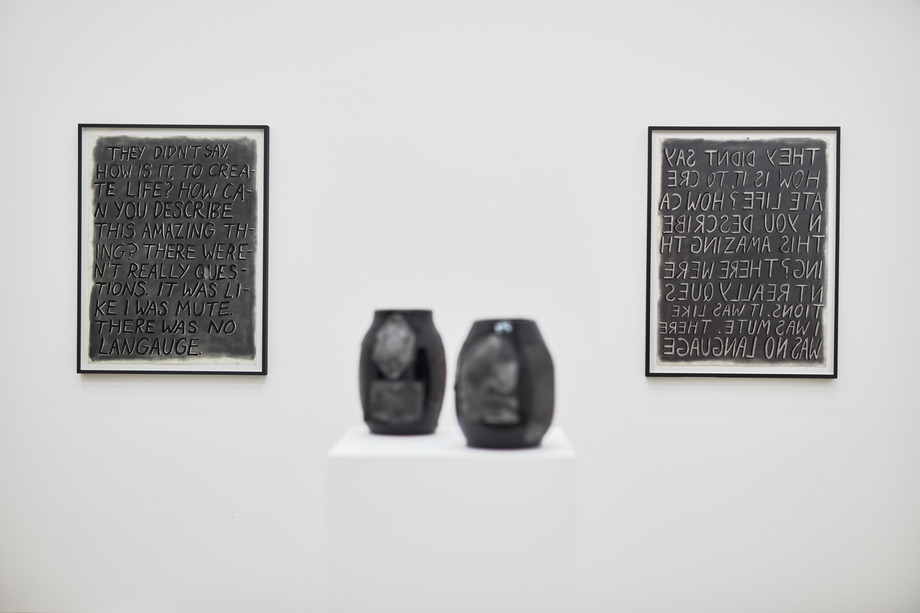 THEY DIDN'T SAY,
HOW IS IT, TO CREA-
TE LIFE? HOW CA-
N YOU DESCRIBE
THIS AMAZING TH-
ING? THERE WERE-
N'T REALLY QUES-
TIONS. IT WAS LI-
KE I WAS MUTE.
THERE WAS NO
LANGAUGE.
THEY DIDNT SAY
HOW IS IT, TO CRE
ATE LIFE? HOW CA
N YOU DESCRIBE
THIS AMAZING TH
ING? THERE WERE
NT REALLY QUES
TIONS. IT WAS LIKE
I WAS MUTE. THERE
WAS NO LANGUAGE